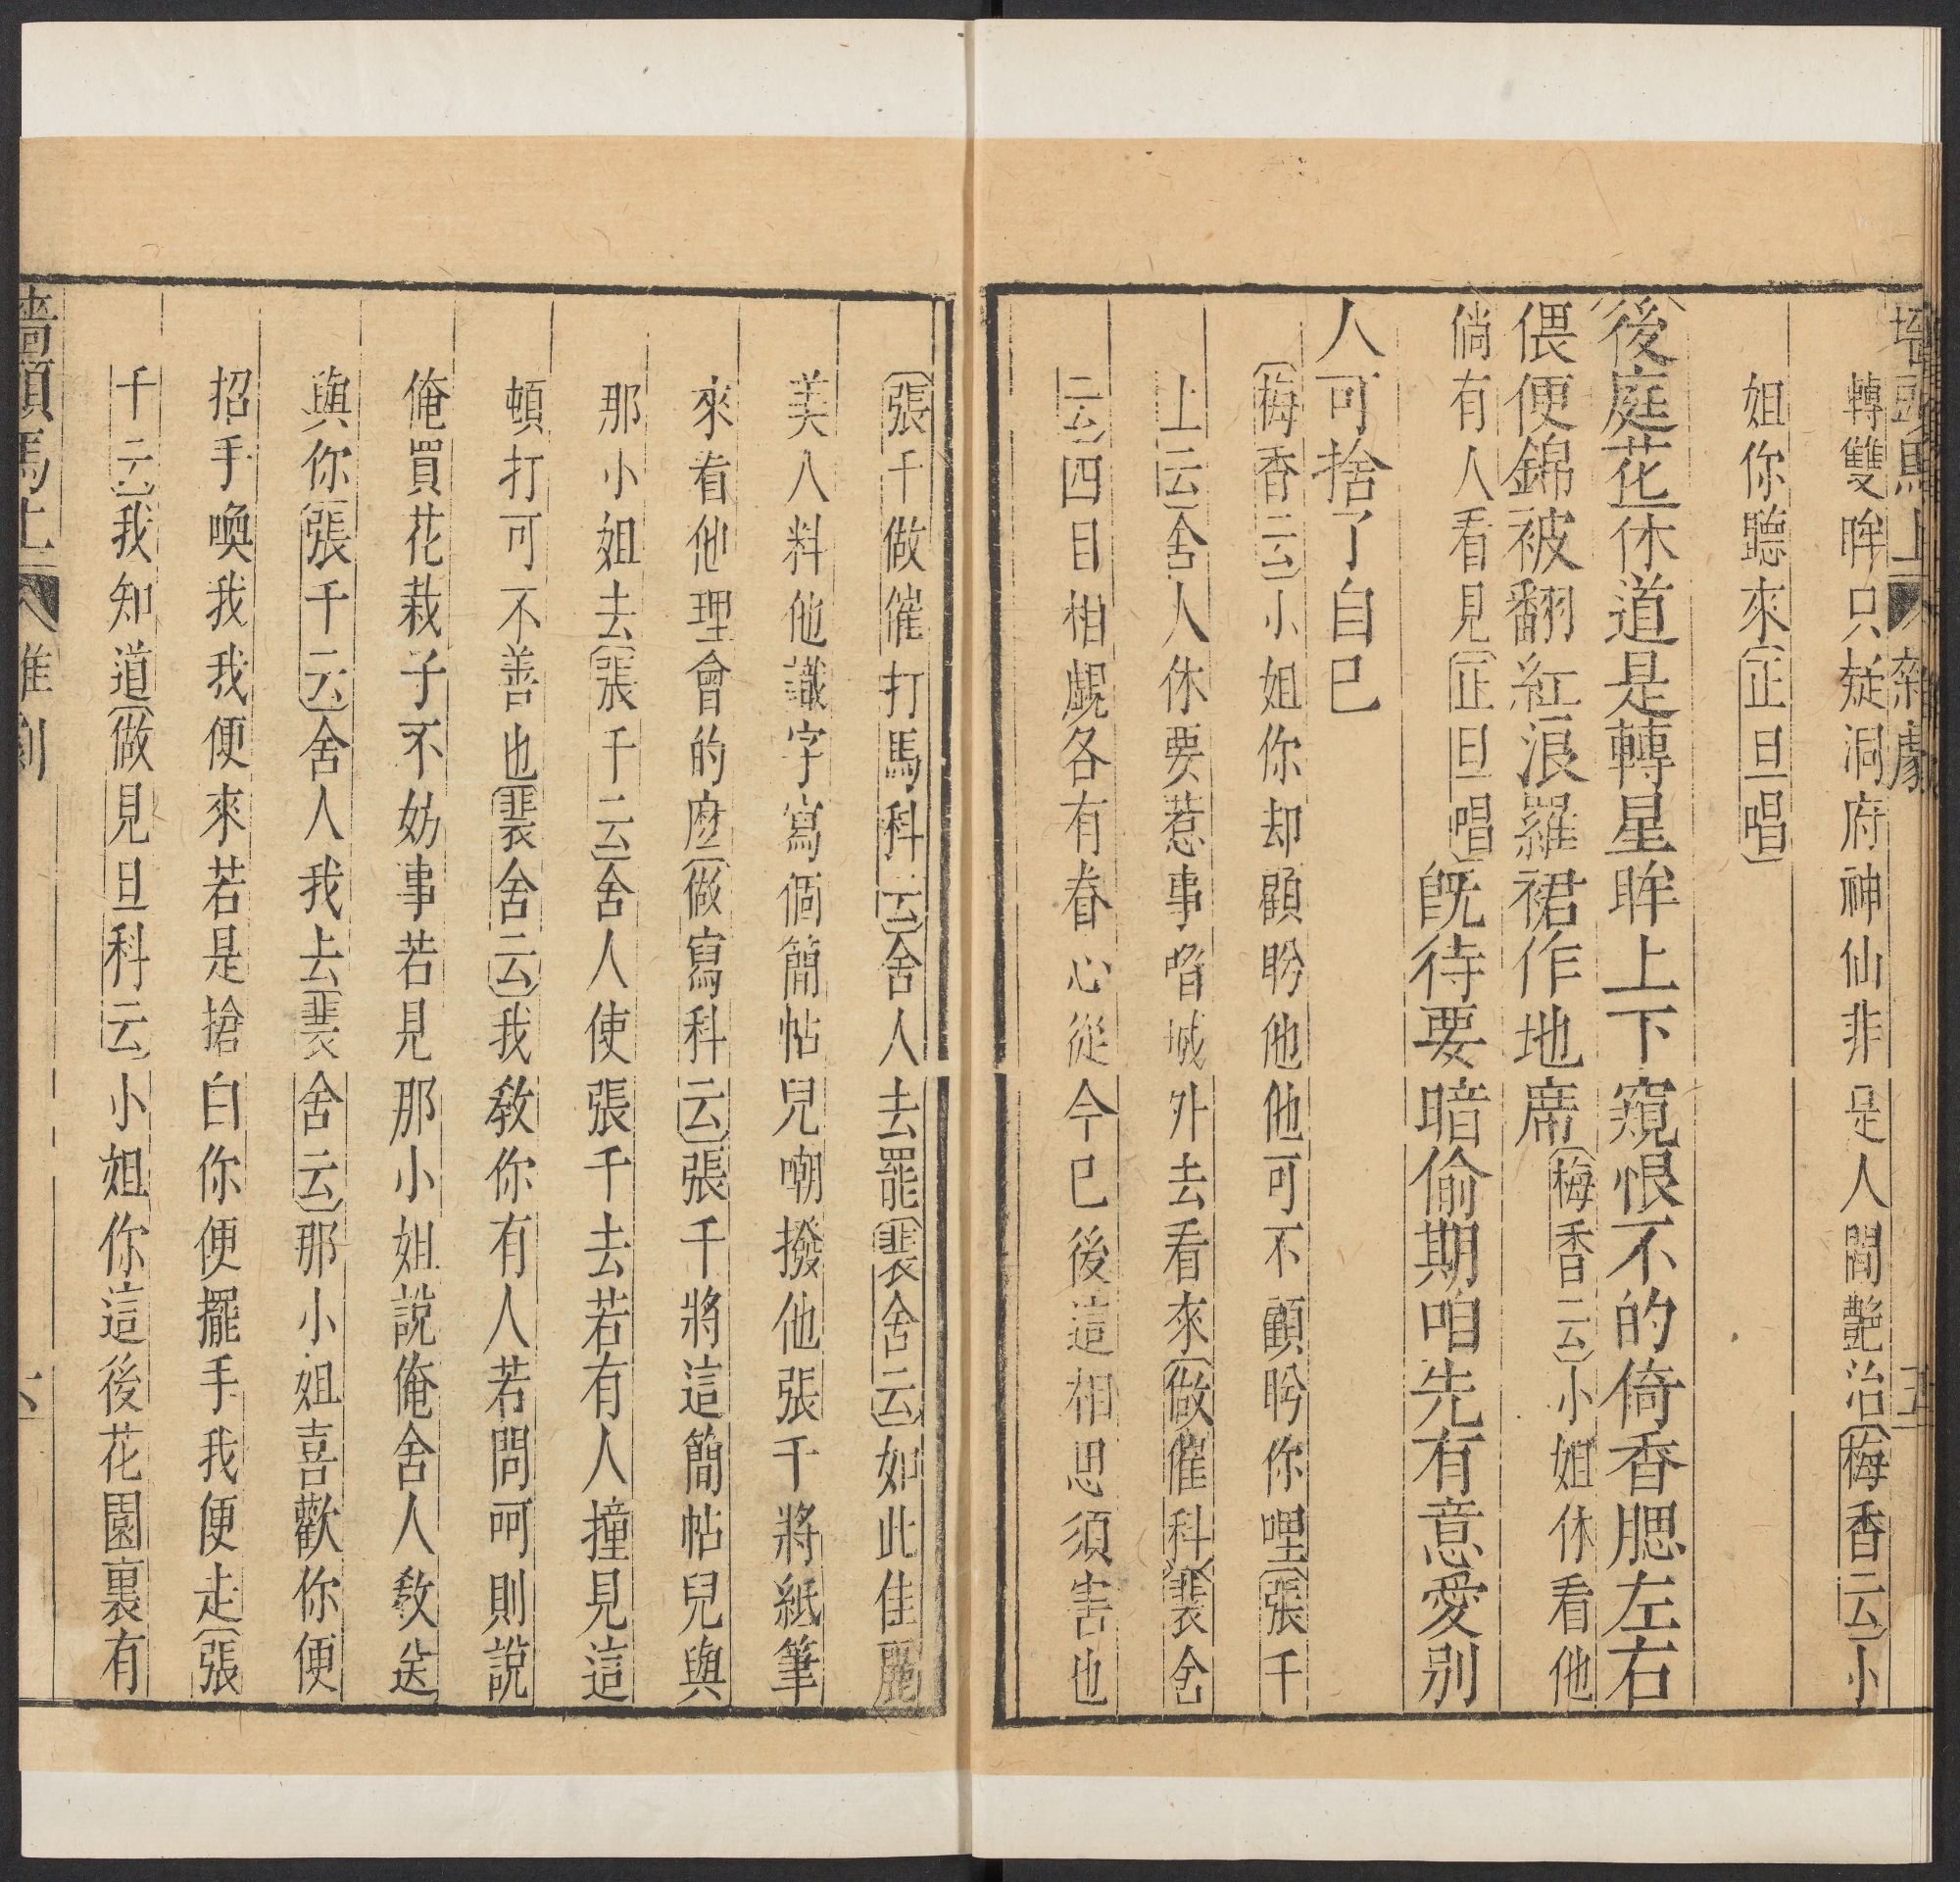 墻頭馬上 雜劇 五
轉雙眸只疑洞府神仙非是人間艷冶〔梅香云〕小
姐你聽來〔正旦唱〕
〈後庭花〉休道是轉星眸上下窺恨不的倚香腮左右
偎便錦被翻紅浪羅裙作地席〔梅香云〕小姐休看他
倘有人看見〔正旦唱〕旣待要暗偷期咱先有意愛別
人可捨了自已
〔梅香云〕小姐你却顧盻他他可不顧盻你哩〔張千
上云〕舍人休要惹事喒城外去看來〔做催科〕〔裴舍
云〕四目相覷各有眷心從今已後這相思須害也
〔張千做催打馬科云〕舍人去罷〔裴舍云〕如此佳麗
美人料他識字寫個簡帖兒嘲撥他張千將紙筆
來看他理會的麽〔做寫科云〕張千將這簡帖兒與
那小姐去〔張千云〕舍人使張千去若有人撞見這
頓打可不善也〔裴舍云〕我敎你有人若問呵則說
俺買花栽子不妨事若見那小姐說俺舍人敎送
與你〔張千云〕舍人我去〔裴舍云〕那小姐喜歡你便
招手喚我我便來若是搶白你便擺手我便走〔張
千云〕我知道〔做見旦科云〕小姐你這後花園裏有
墻頭馬上 雜劇 六